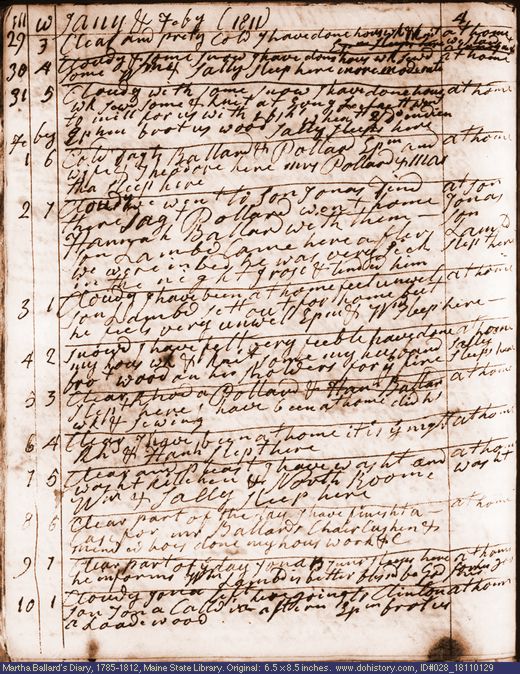 1811 w Jany & Feby (1811) 4
29 3 Clear and prety Cold I have done hous wk at home
30 4 Cloudy & some snow I have done hous wk sewd at home
some Wm & Sally Sleep here more moderat
31 5 Cloudy with some snow I have done hous at home
wk sew some & knit
to mill for us with
Ephm brot us wood Sally Sleeps here
Feby
1 6 Cold Ballard & Pollard Spun and at home
Theodore here mrs Pollard & mas
tha Sleep here
2 7 Cloudy we went to Son Jonas dind at Son
there Pollard went home Jonas
Hannah Ballard with them Son
Son Lambd Came here after Lambd
we were in bed he was very sick Sleep here
in the night I rose & tended him
3 1 Cloudy I have been at home feel unwell at home
Son Lambd sett out for home but
he feels very unwell Epm & Wm Sleep here
4 2 Snowd I have felt very feeble have done at home
my hous wk & knit some my husband Sally
bro wood and for a fire Sleeps here
5 3 Clear Rhoda Pollard & Hanh Ballar at home
Sleep here I have been at home did hs
wk & Sewing
6 4 Clear I have been at home it is 4 night at home
Rh & Hanh Slept here
7 5 Clear and pleast I have washt and at home
washt kitchen & North Roome washt
Wm & Sally Sleep here
8 6 Clear part of the day I have finisht a at home
Case for mr Ballards Chair Cushen &
mend hoes done my hous work &c
9 7 Clear part of ye day Jona Sleeps here at home
he informs Lambd is better blessed be God
10 1 Cloudy Jona left here going to Clinton at home
Son Jona Calld in aftern Epm brot us
a Load wood
Martha Ballard's Diary, 1785-1812, Maine State Library. Original: 6.5 x 8.5 inches. www.dohistory.com, ID#028_18110129